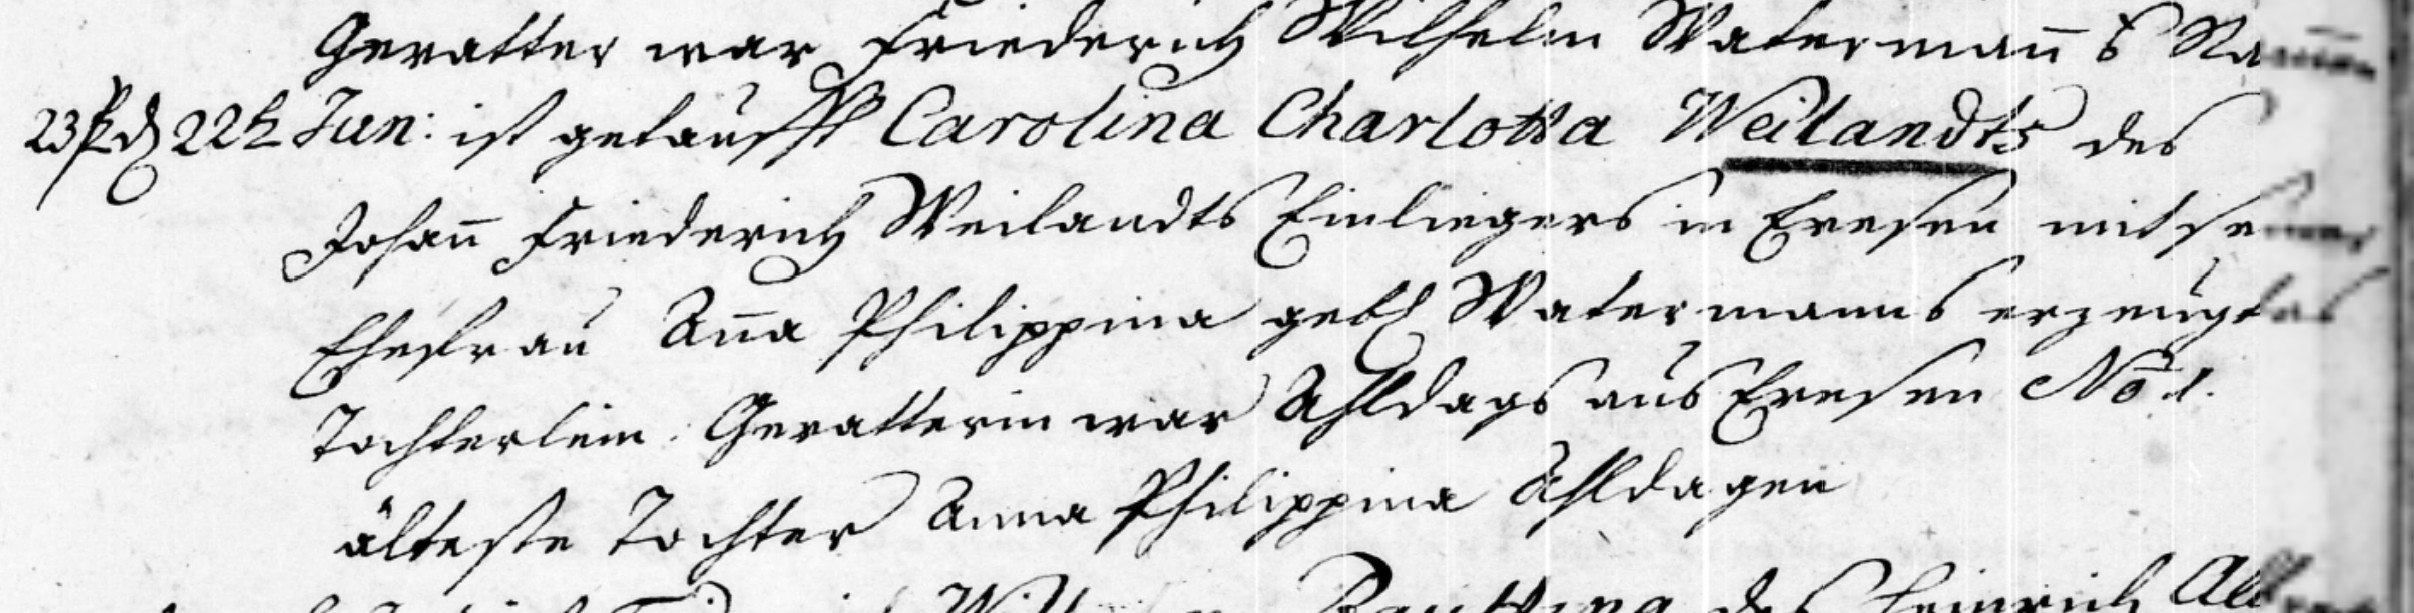 Gevatter war Friederich Wilhelm Watermann
22t Jun: ist getaufft Carolina Charlotta Weilandts des
Johann Friederich Weilandts Einliegers in Evesen mit seiner
Ehefrau Anna Philippina geb. Watermanns erzeugtes
Töchterlein. Gevatterin war Ahldags aus Evesen No 1.
älteste Tochter Anna Philippina Ahldagen
des Heinrich